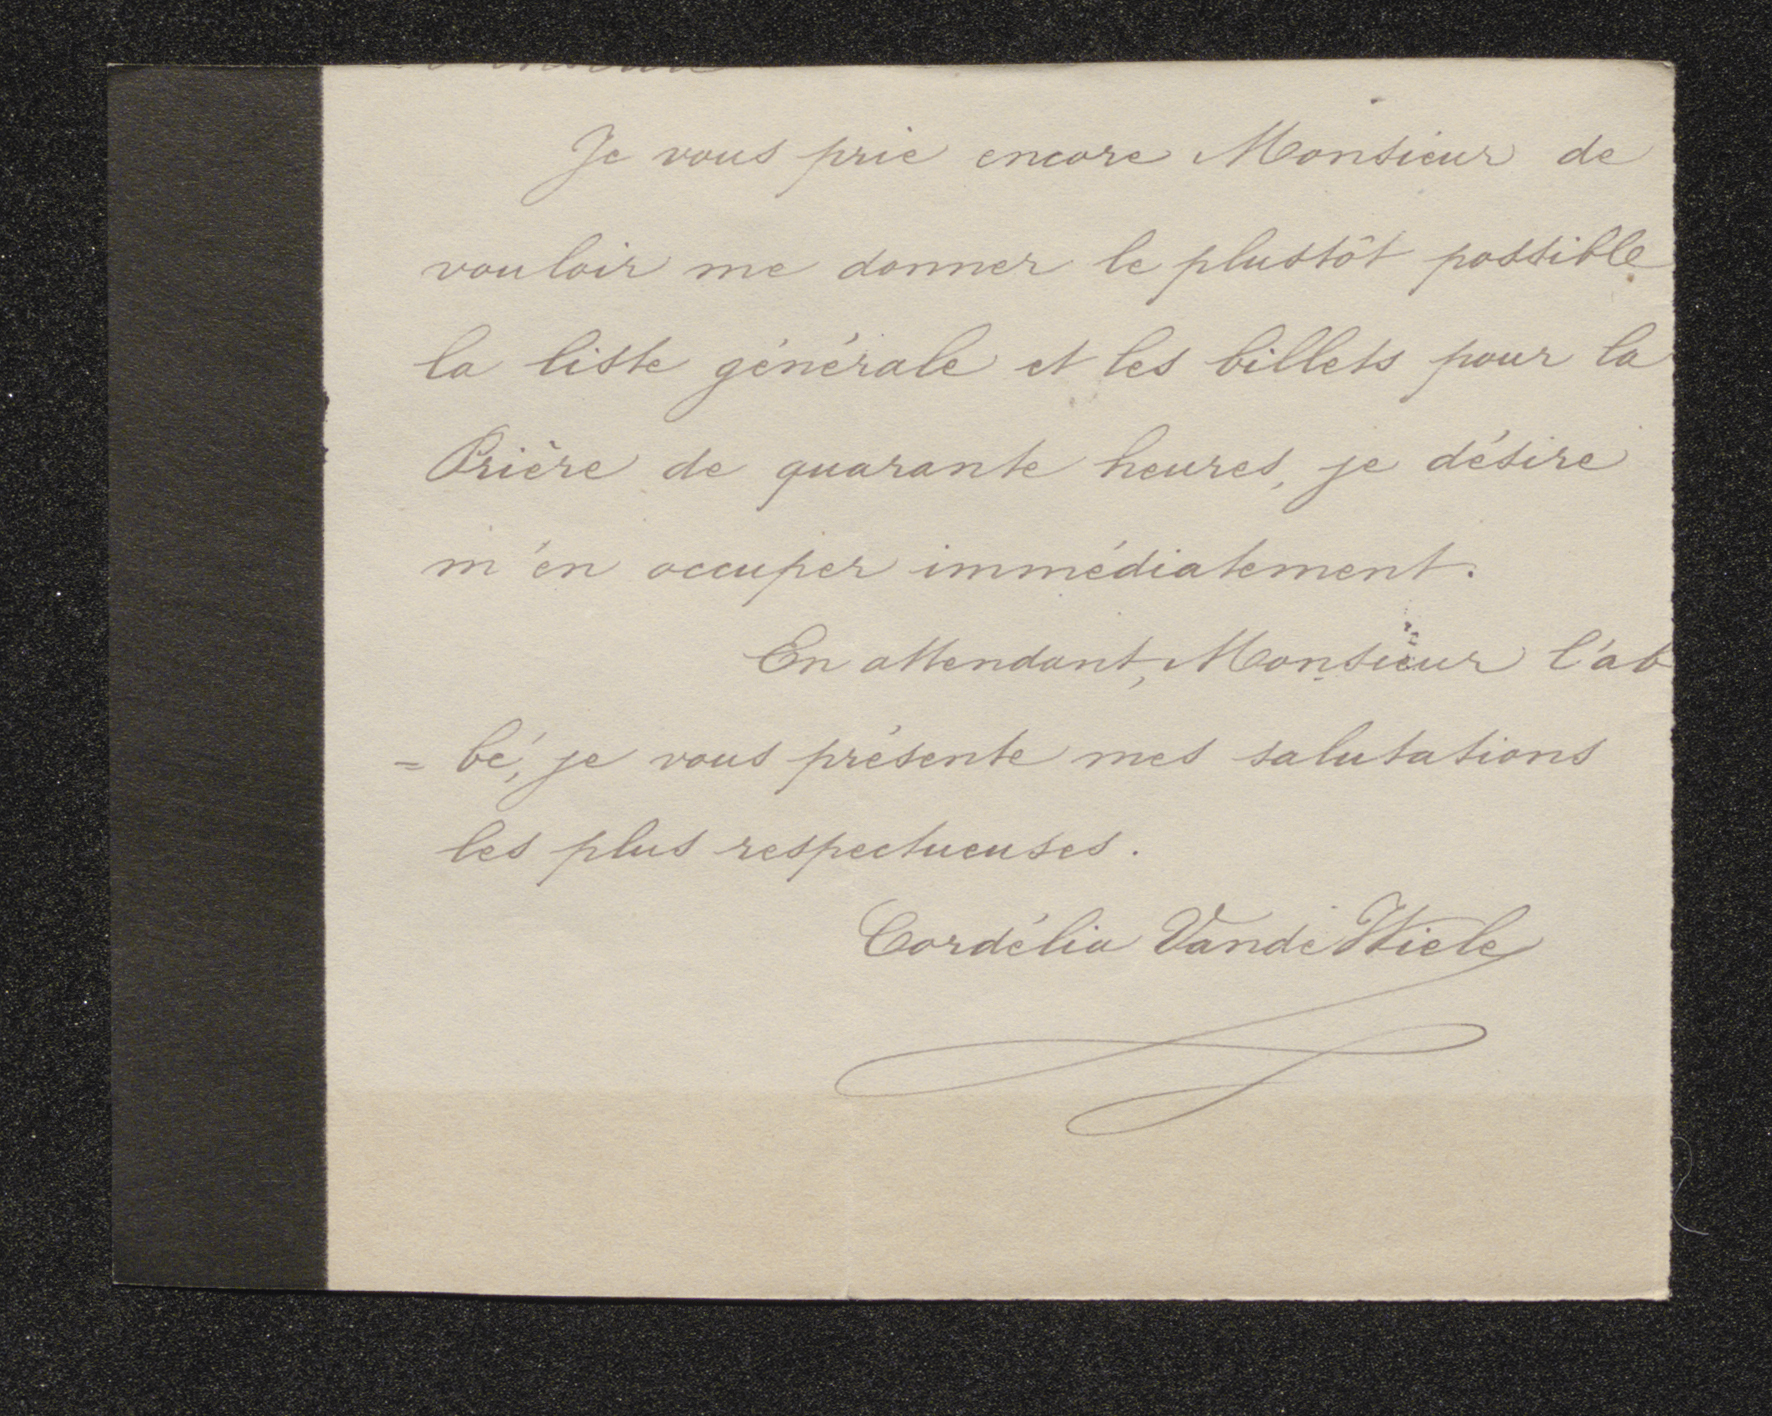 Je vous prie encore Monsieur de
vouloir me donner le plustôt possible
la liste générale et les billets pour la
Prière de quarante heures, je désire
m'en occuper immédiatement.
En attendant, Monsieur l'ab
= bé, je vous présente mes salutations
les plus respectueuses.
Cordélia Vande Wiele